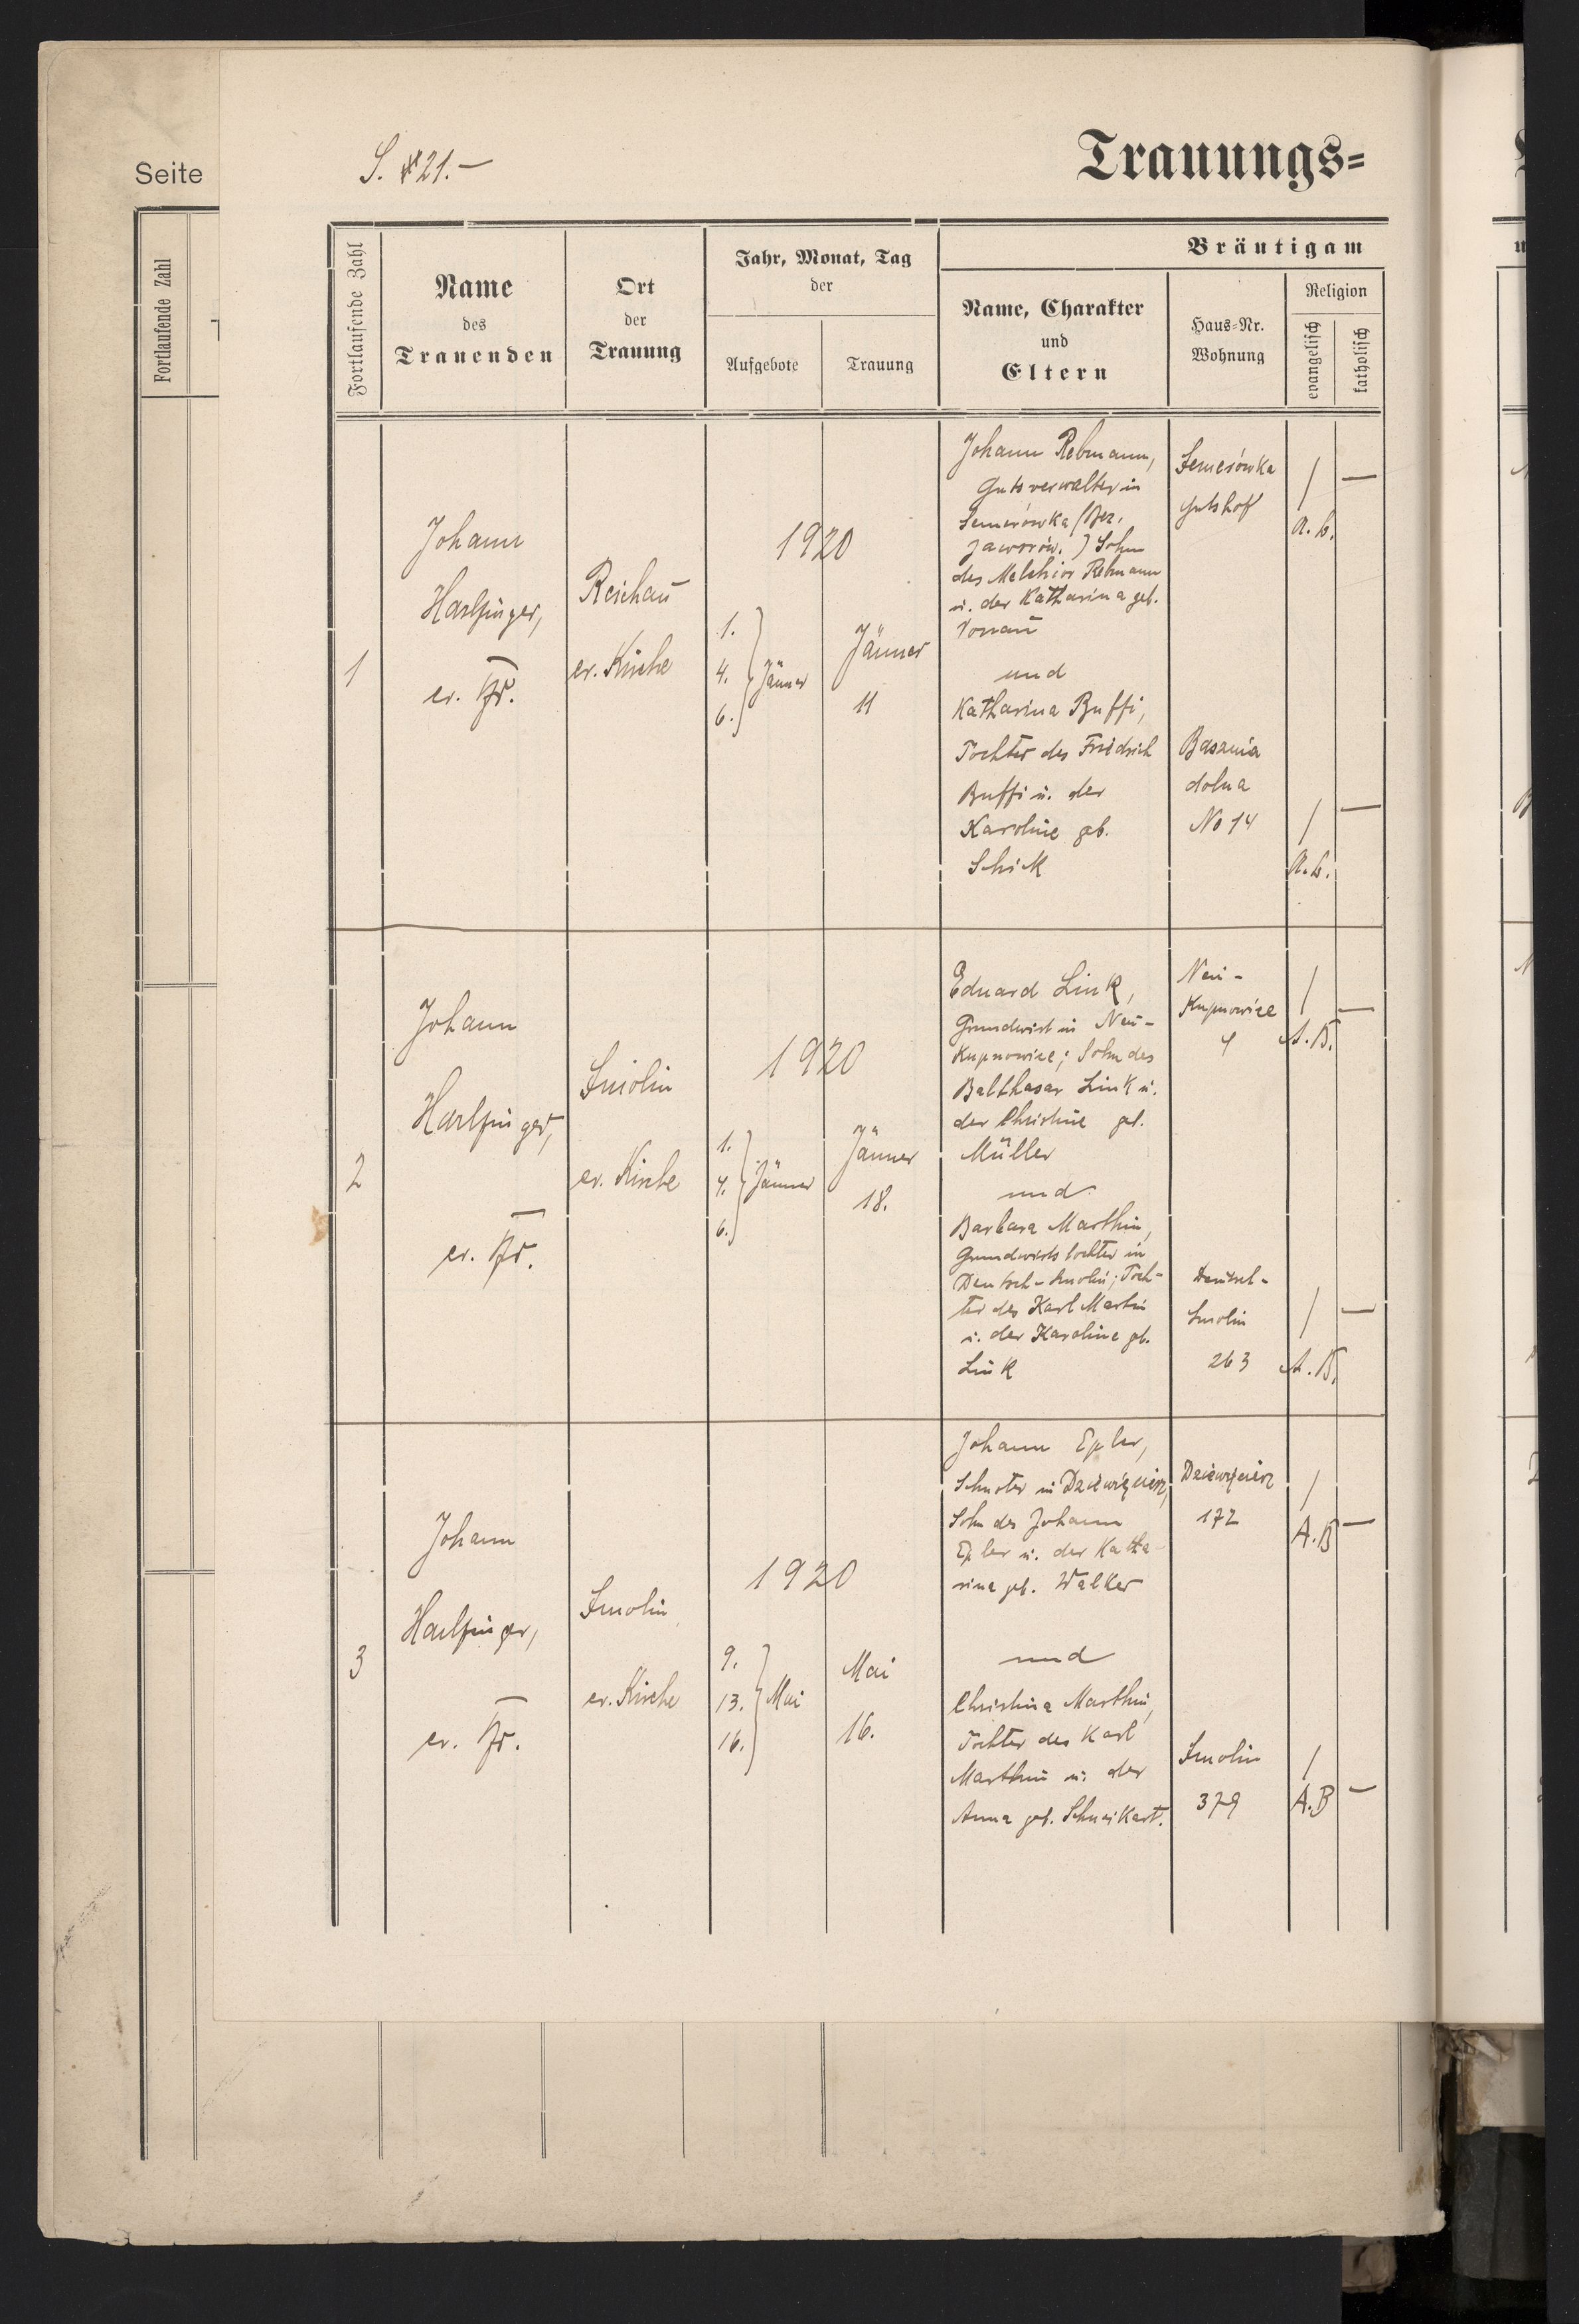 Seite
Fortlaufende Zahl
S. 21.—
Trauungs=
Fortlaufende Zahl
Name
des
Trauenden
Ort
der
Trauung
Jahr, Monat, Tag
der
Aufgebote
Trauung
Bräutigam
Name, Charakter
und
Eltern
Haus=Nr.
Wohnung
Religion
evangelisch
katholisch
1
Johann
Harlfinger,
ev. Pfr.
Reichau
ev. Kirche
1920
1.
4. Jänner
6.
Jänner
11
Johann Rebmann,
Gutsverwalter in
Semerówka (Bez.
Jaworów.) Sohn
des Melchior Rebmann
u. der Katharina geb.
Vonau
und
Katharina Buffi,
Tochter des Friedrich
Buffi u. der
Karoline geb.
Schick
Semerówka
Gutshof
/ —
A. B.
Basznia
dolna
No 14
/ —
A. B.
2
Johann
Harlfinger,
ev. Pfr.
Smolin
ev. Kirche
1920
1.
4. Jänner
6.
Jänner
18.
Eduard Link,
Grundwirt in Neu-
Kupnowice; Sohn des
Balthasar Link u.
der Christine geb.
Müller
und
Barbara Marthin,
Grundwirtstochter in
Deutsch-Smolin; Toch-
ter des Karl Martin
u. der Karoline gb.
Link
Neu-
Kupnowice
/ —
A. B.
Deutsch-
Smolin
263
/ —
A. B.
3
Johann
Harlfinger,
ev. Pfr.
Smolin
ev. Kirche
1920
9.
13. Mai
16.
Mai
16.
Johann Epler,
in Dziewięcierz,
Sohn des Johann
Epler u. der Katha-
rina geb. Walker
und
Christina Marthin,
Tochter des Karl
Marthin u. der
Anna geb. Schweikart.
Dziewięcierz
172
/
A.B —
Smolin
379
/
A.B —